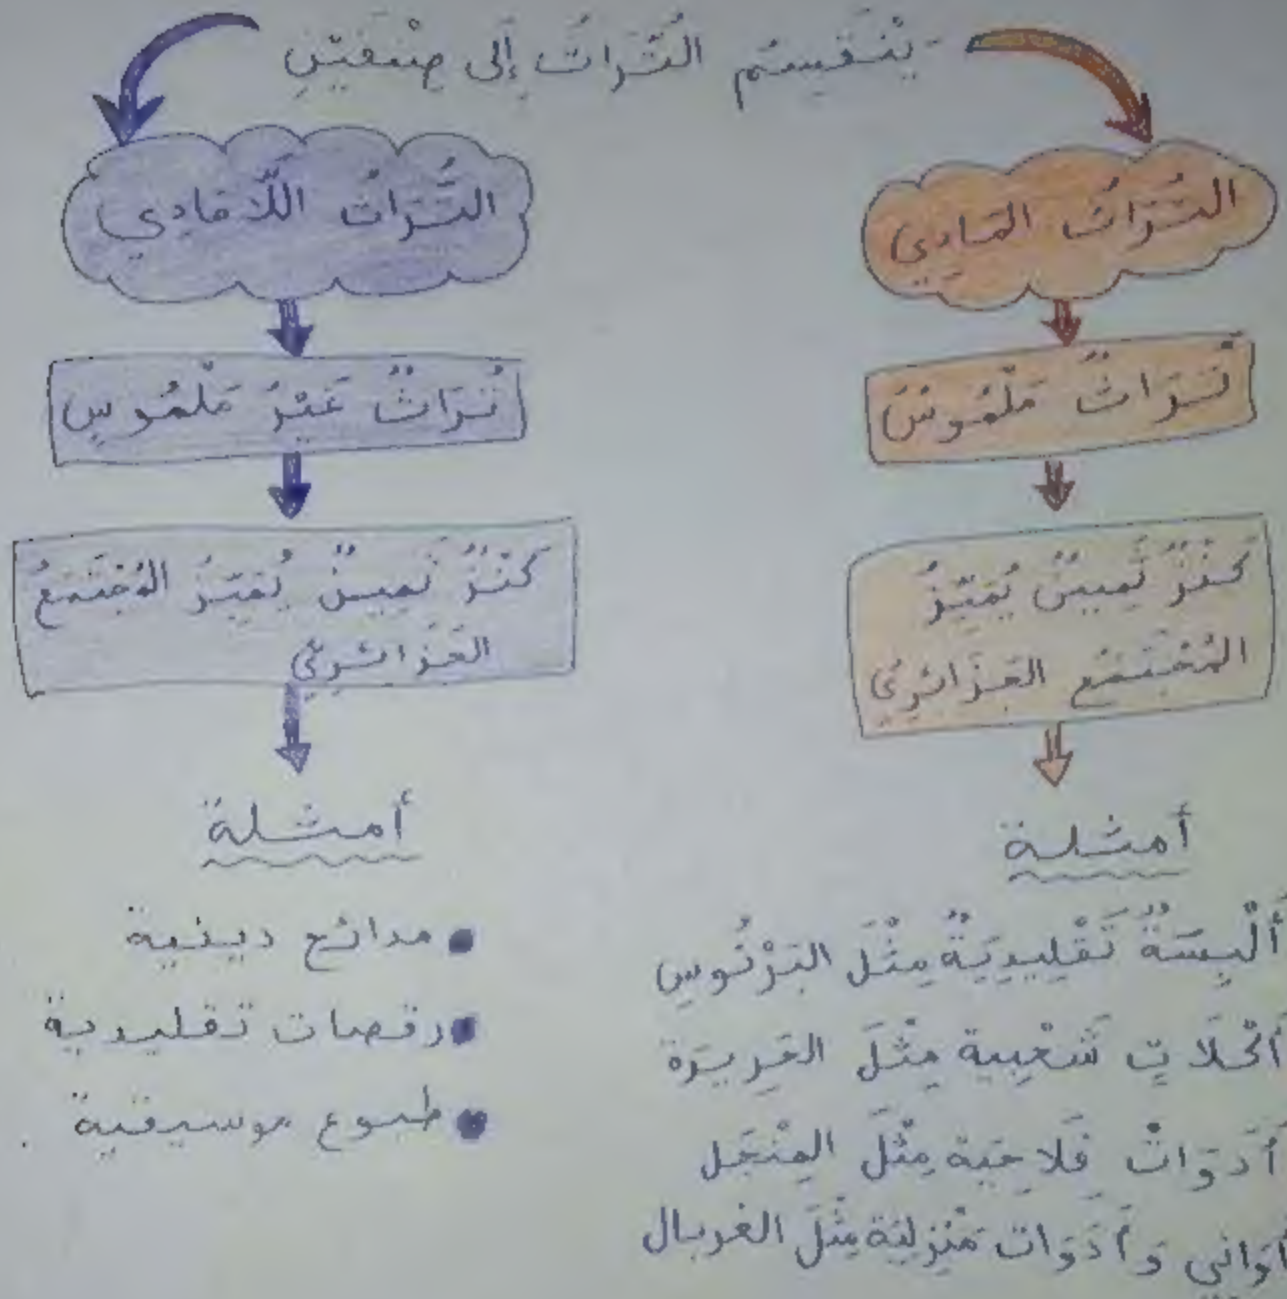 - يَنْقَسِمُ التُّرَاثُ إِلَى صِنْفَيْنِ
التُّرَاثُ المَادِي
تُرَاثٌ مَلْمُوسٌ
كَنْزٌ ثَمِينٌ يُمَيِّزُ
المُجْتَمَعَ الجَزَائِرِيَّ
أمثلة
أَلْبِسَةٌ تَقْلِيدِيَةٌ مِثْلَ البَرْنُوسِ
أَكْلَاتٍ شَعْبِية مِثْلَ الحَرِيرَة
أَدَوَاتٌ فَلاحِية مِثْلَ المِنْجَل
أَوَانِي وَأَدَوَات مَنْزِلِيَة مِثْلَ الغربال
التُّرَاثُ اللَّامَادِي
تُرَاثٌ غَيْرُ مَلْمُوسٍ
كَنْزٌ ثَمِينٌ يُمَيِّزُ المُجْتَمَعَ
الجَزَائِرِيَّ
أمثلة
• مدائح دينية
• رقصات تقليدية
• طبوع موسيقية .